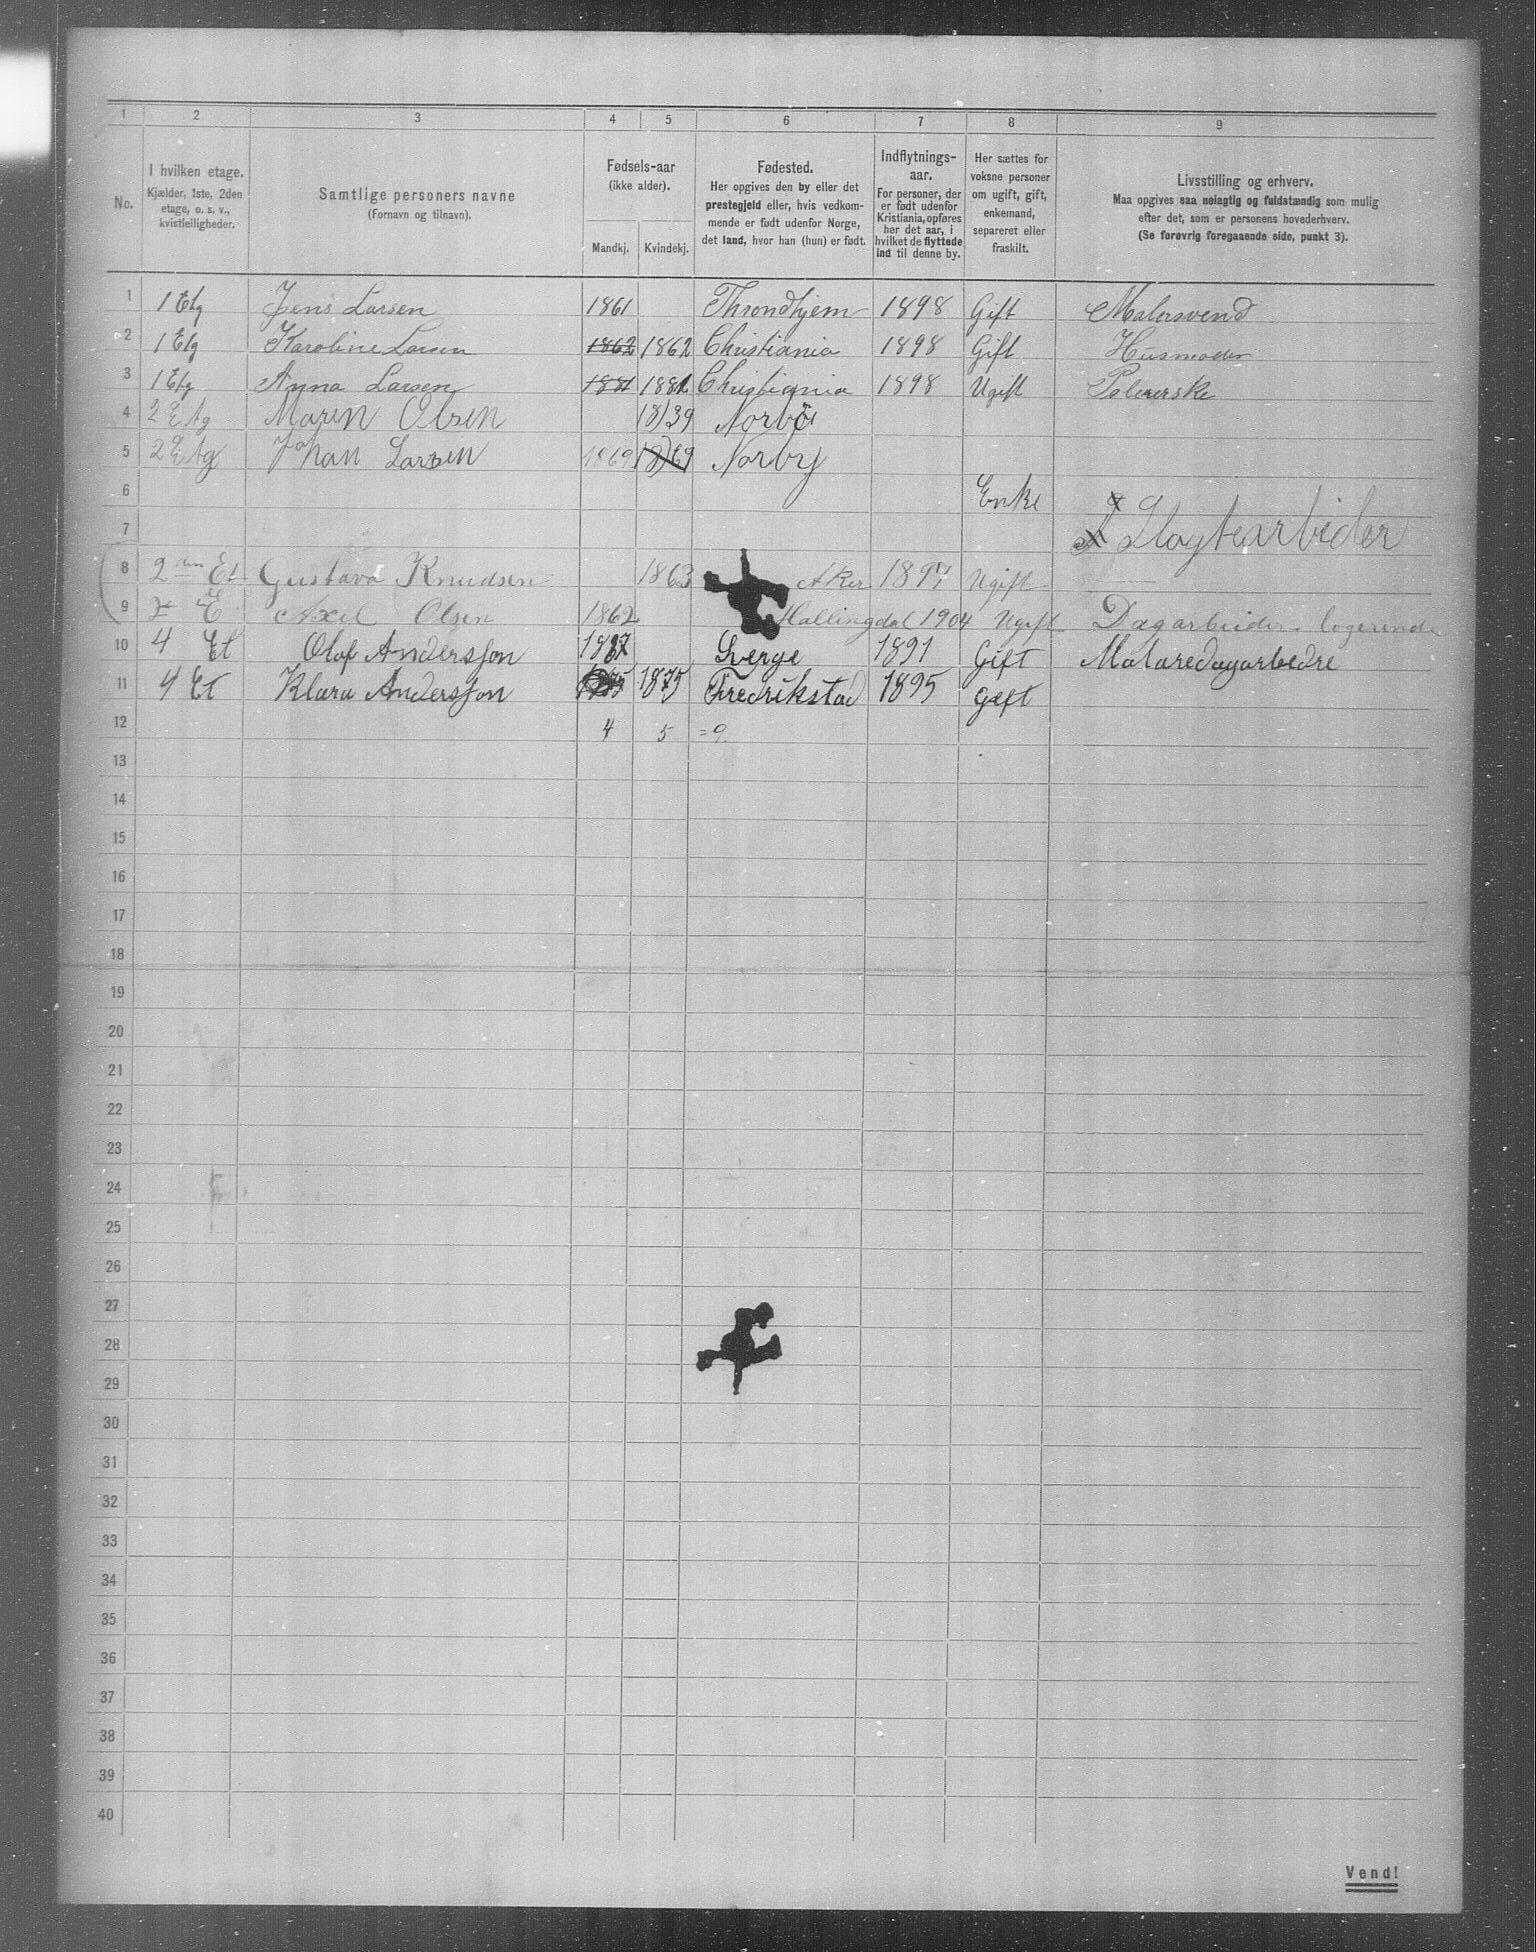 1 2 3 4 5 6 7 8 9
No. I hvilken etage. Kjælder, 1ste, 2den etage, o. s. v., kvistleiligheder. Samtlige personers navne (Fornavn og tilnavn). Fødsels-aar (ikke alder). Mandkj. Kvindekj. Fødested. Her opgives den by eller det prestegjeld eller, hvis vedkommende er født udenfor Norge, det land, hvor han (hun) er født. Indflytnings-aar. For personer, der er født udenfor Kristiania, opføres her det aar, i hvilket de flyttede ind til denne by. Her sættes for voksne personer om ugift, gift, enkemand, separeret eller fraskilt. Livsstilling og erhverv. Maa opgives saa nøiagtig og fuldstændig som mulig efter det, som er personens hovederhverv. (Se forøvrig foregaaende side, punkt 3).
1 1 Etg Jens Larsen 1861 Throndhjem 1898 Gift Malersvend
2 1 Etg Karoline Larsen 1862 1862 Christiania 1898 Gift Husmoder
3 1 Etg Anna Larsen 1881 1881 Christiania 1898 Ugift Polererske
4 2 Etg Maren Olsen 1839
5 2 Etg Johan Larsen 1869 1869 Norby
6 Enke
7
8 2den Et Gustava Knudsen 1863 Aker 1897 Ugift
9 2 E Axel Olsen 1862 Hallingdal 1904 Ugift Dagarbeider logerende
10 4 Et Olof Andersson 1887 Sverge 1891 Gift Malaredagarbedre
11 4 Et Klara Andersson 1875 1875 Fredrikstad 1895 Gift
12 4 5 = 9.
13
14
15
16
17
18
19
20
21
22
23
24
25
26
27
28
29
30
31
32
33
34
35
36
37
38
39
40
Vend!